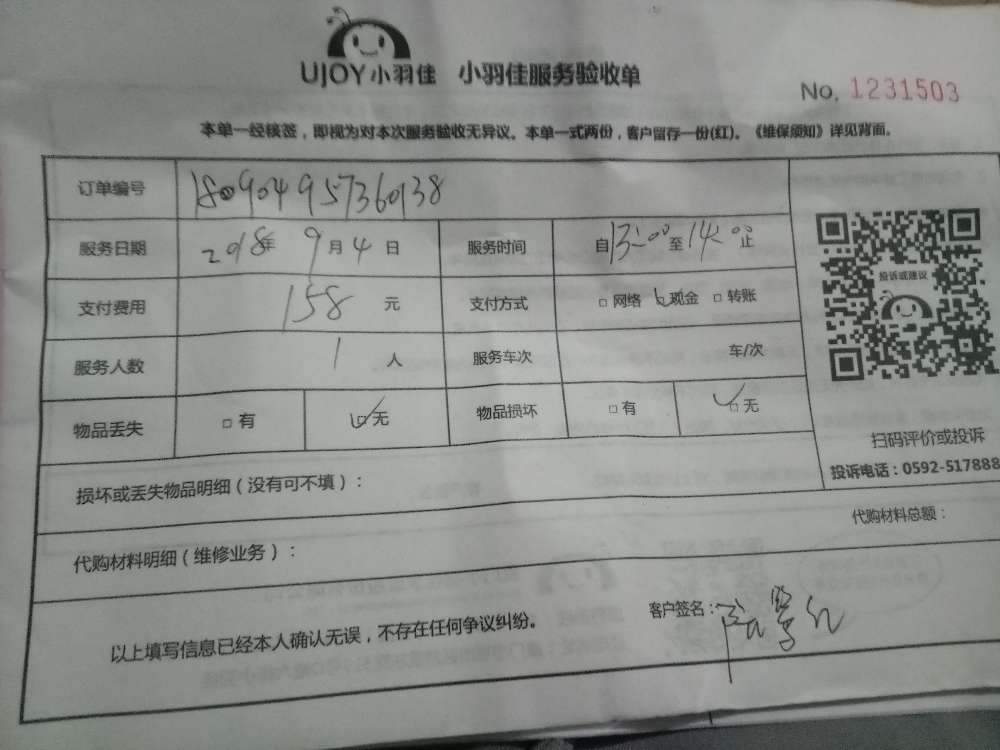 UJOY小羽佳 小羽佳服务验收单
No. 1231503
本单一经核签，即视为对本次服务验收无异议。本单一式两份，客户留存一份(红)。《维保须知》详见背面。
订单编号 180904957360138
服务日期 2018年 9月 4日 服务时间 自13:00至14:00止
支付费用 158 元 支付方式 □网络 现金 □转账
服务人数 1 人 服务车次 车/次
物品丢失 □有 □无 物品损坏 □有 □无
投诉或建议
扫码评价或投诉
投诉电话：0592-517888
损坏或丢失物品明细（没有可不填）：
代购材料明细（维修业务）： 代购材料总额：
以上填写信息已经本人确认无误，不存在任何争议纠纷。 客户签名：